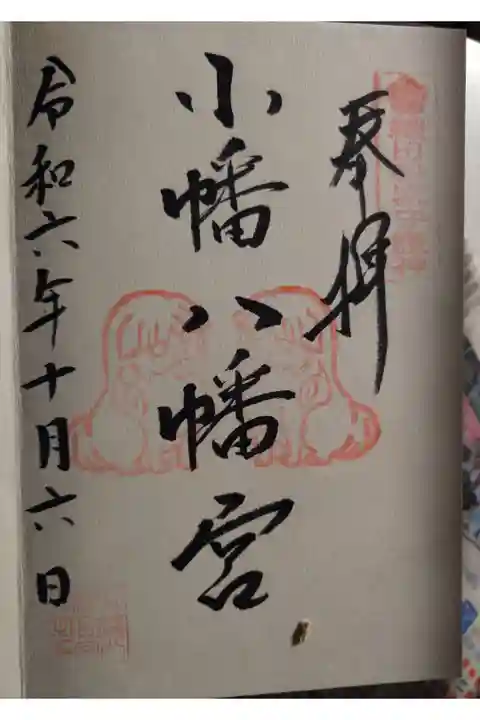 奉拝
小幡八幡宮
令和六年十月六日